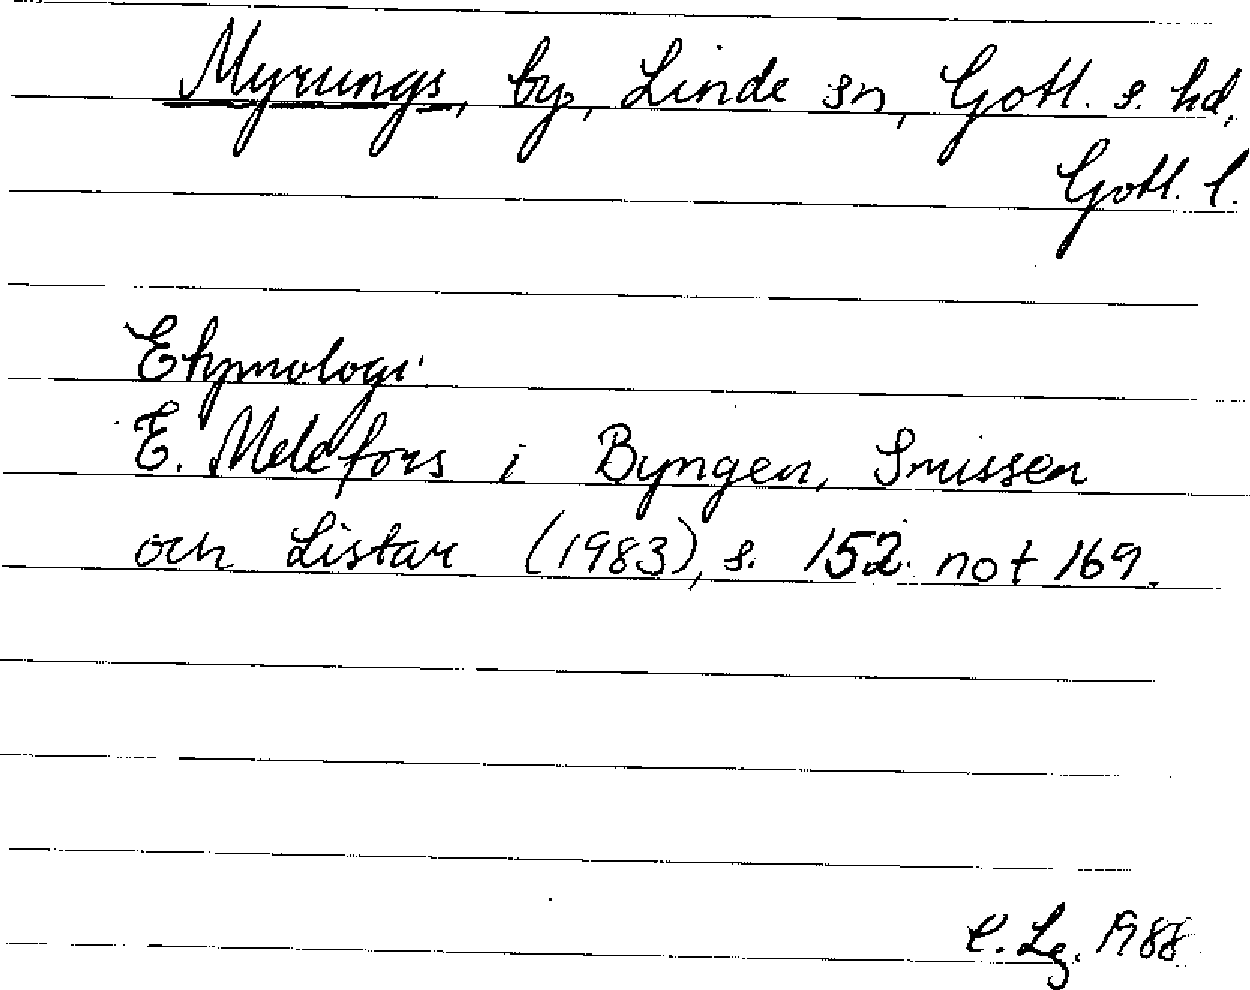 Myrungs, by, Linde sn, Gotl. s. hd,
Gotl. l.
Etymologi
E. Melefors i Byngen, Smissen
och Listar (1983), s. 152 not 169.
C. Lg. 1988